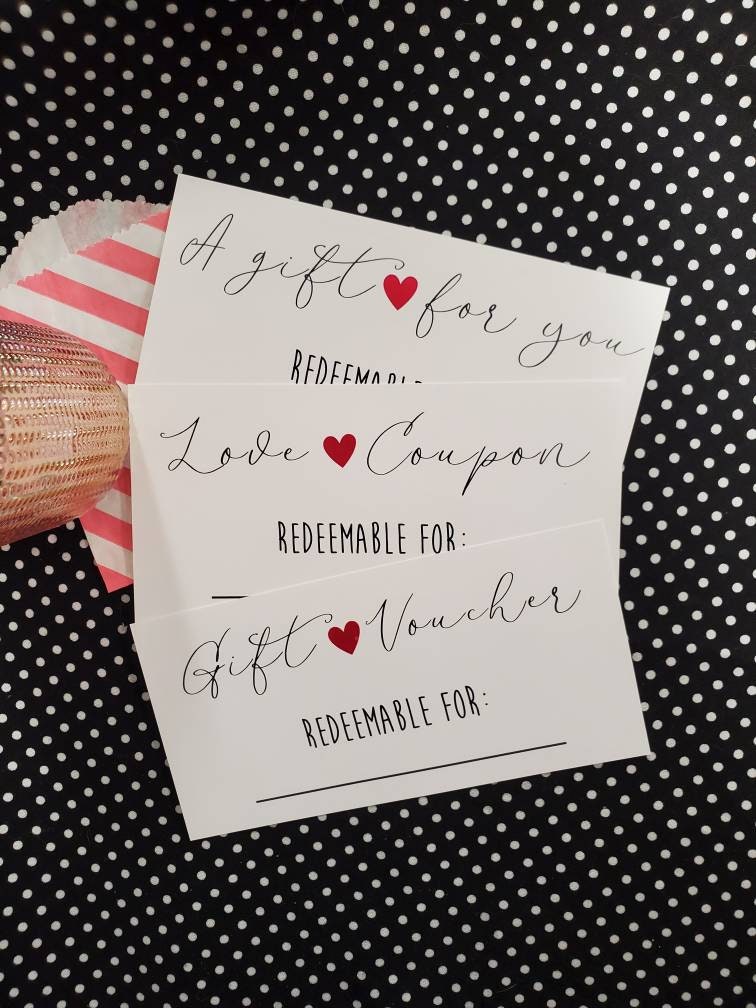 A gift for you
REDEEMABLE
Love Coupon
REDEEMABLE FOR:
Gift Voucher
REDEEMABLE FOR: